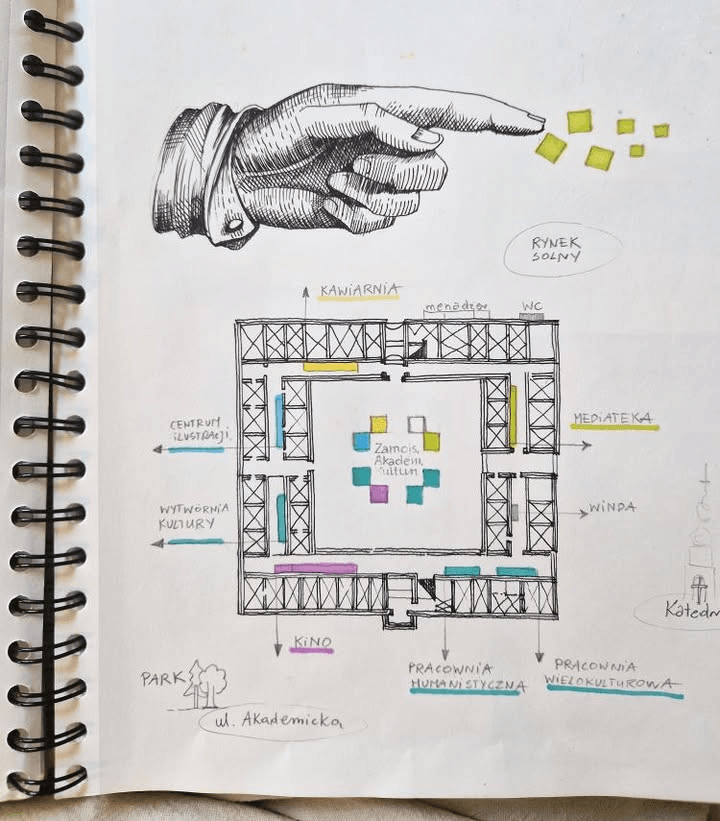 RYNEK
SOLNY
KAWIARNIA
menadżer
WC
CENTRUM
ILUSTRACJI
MEDIATEKA
Zamojs.
Akadem.
Kultury
WYTWÓRNIA
KULTURY
WINDA
Katedr
KINO
PRACOWNIA
HUMANISTYCZNA
PRACOWNIA
WIELOKULTUROWA
PARK
ul. Akademicka